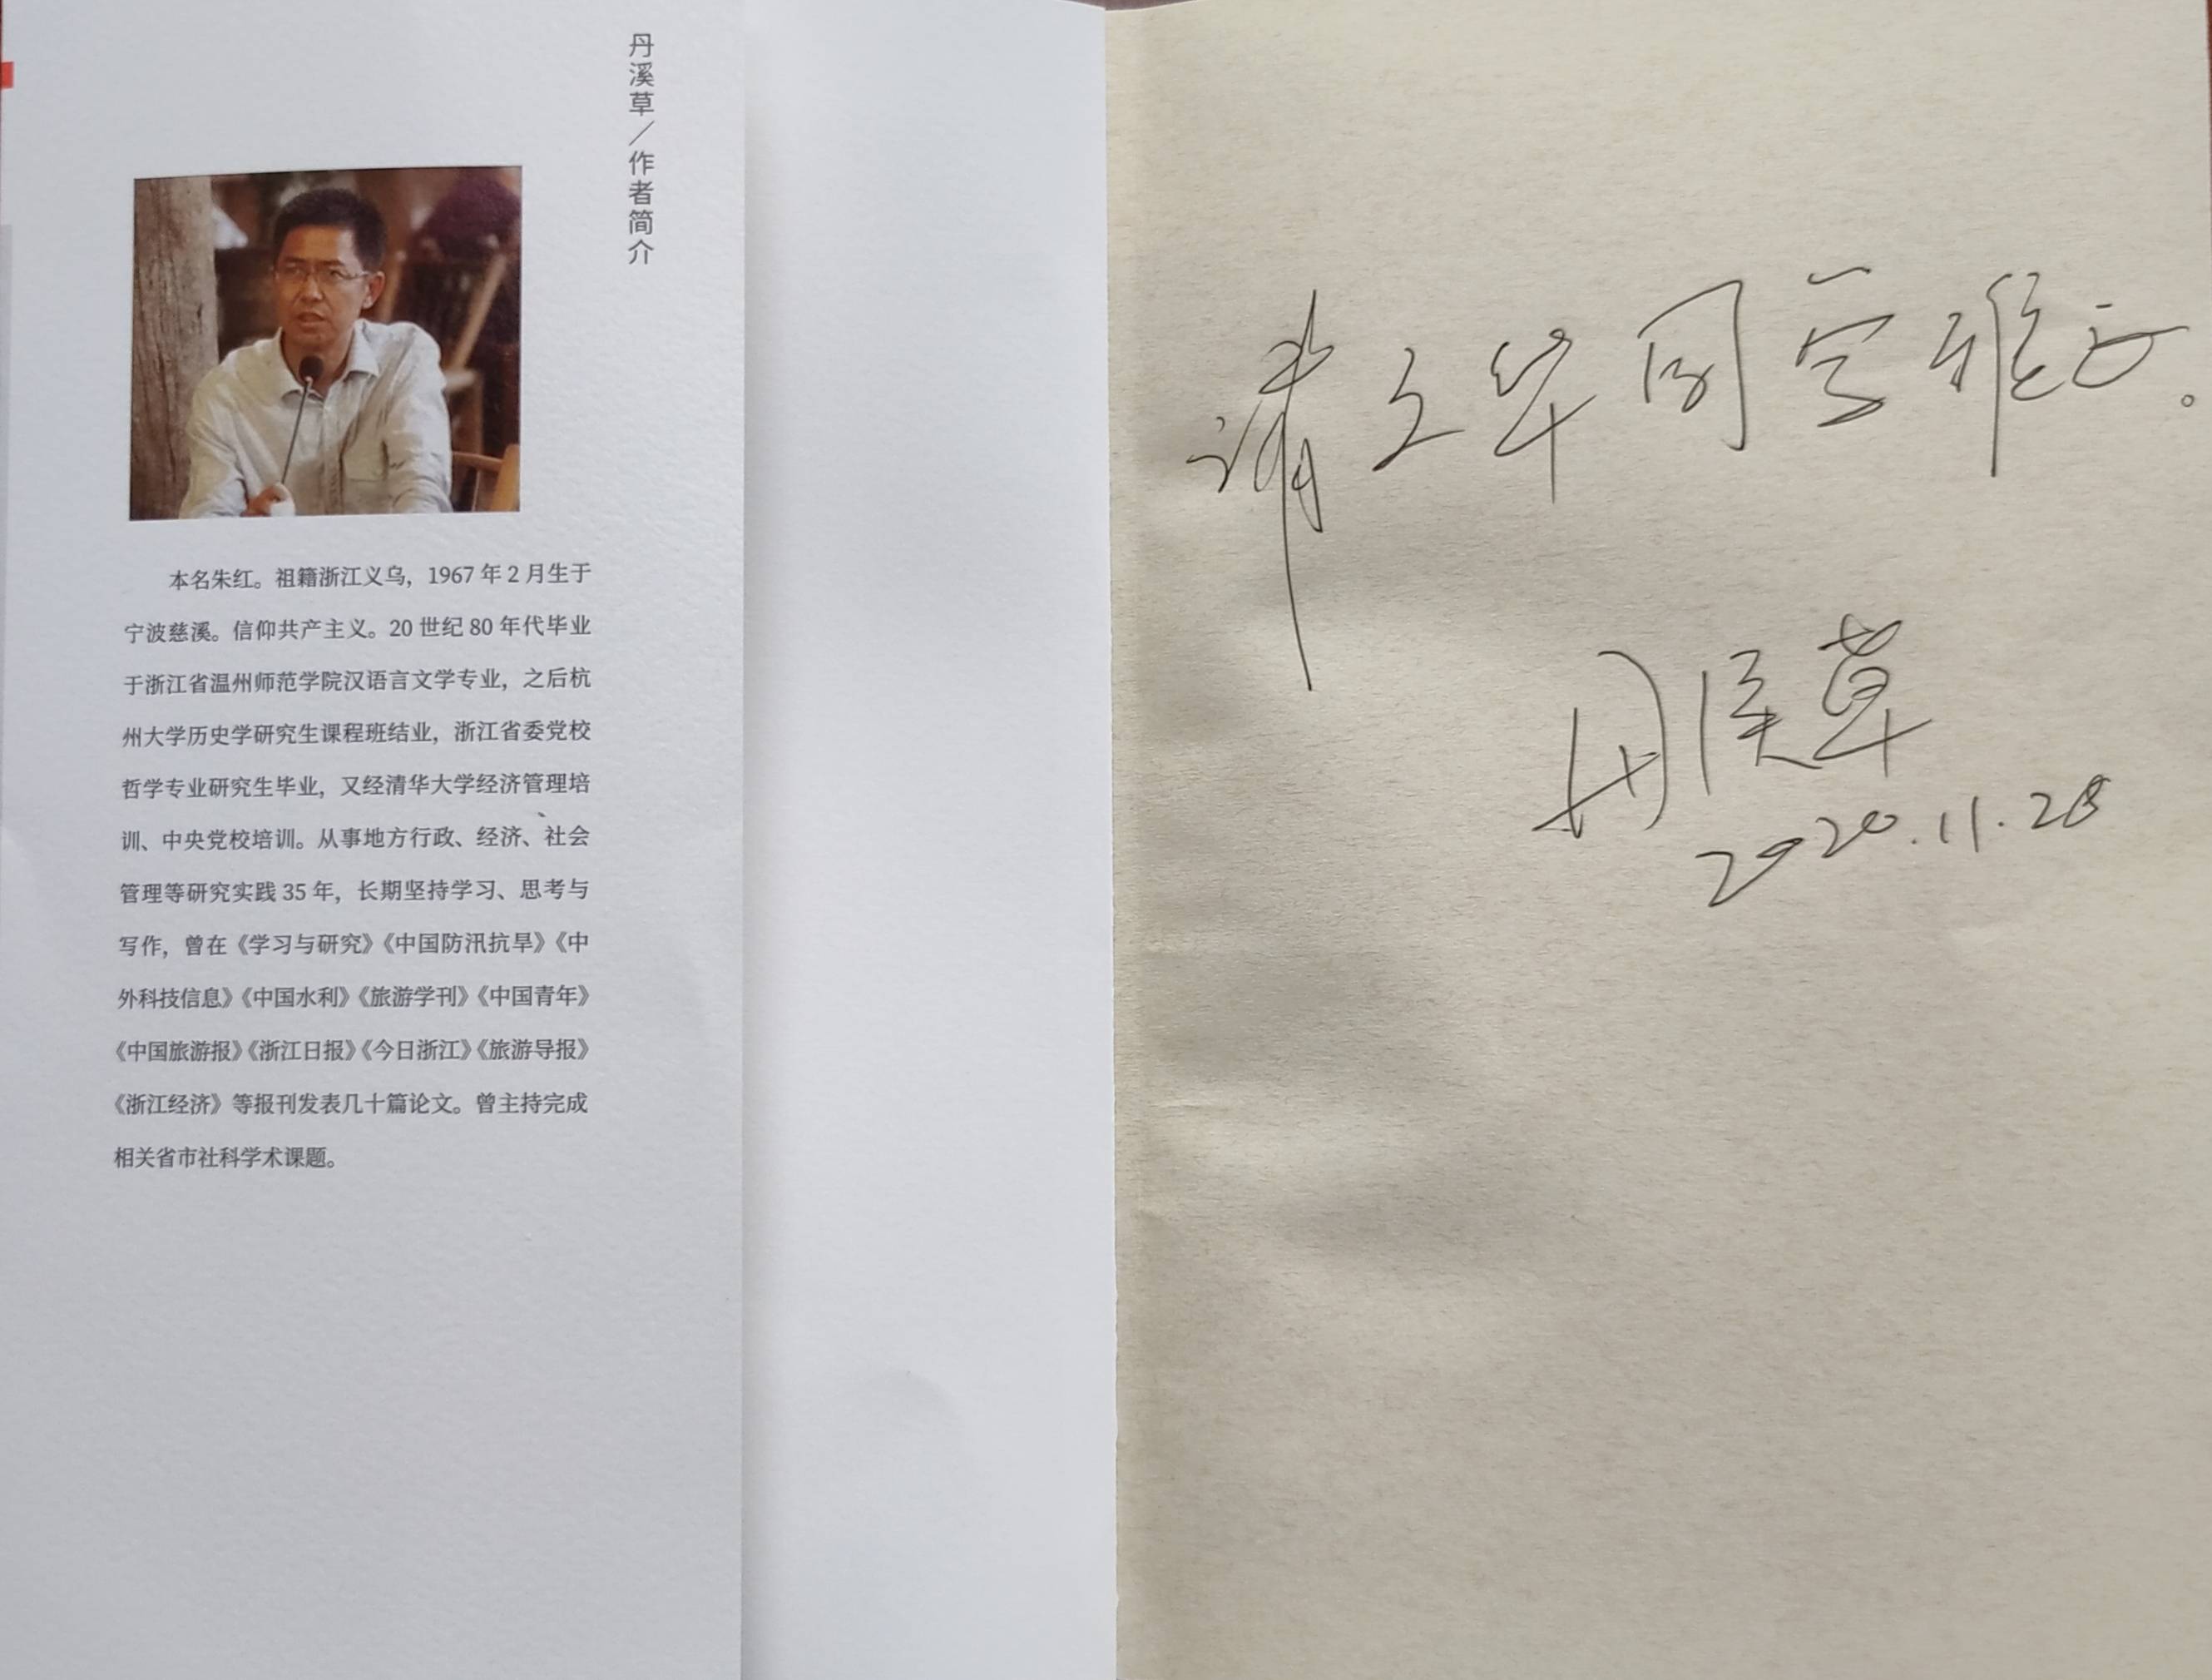 丹溪草／作者简介
本名朱红。祖籍浙江义乌，1967 年 2 月生于
宁波慈溪。信仰共产主义。20 世纪 80 年代毕业
于浙江省温州师范学院汉语言文学专业，之后杭
州大学历史学研究生课程班结业，浙江省委党校
哲学专业研究生毕业，又经清华大学经济管理培
训、中央党校培训。从事地方行政、经济、社会
管理等研究实践 35 年，长期坚持学习、思考与
写作，曾在《学习与研究》《中国防汛抗旱》《中
外科技信息》《中国水利》《旅游学刊》《中国青年》
《中国旅游报》《浙江日报》《今日浙江》《旅游导报》
《浙江经济》等报刊发表几十篇论文。曾主持完成
相关省市社科学术课题。
请文华同学雅正。
丹溪草
2020.11.28